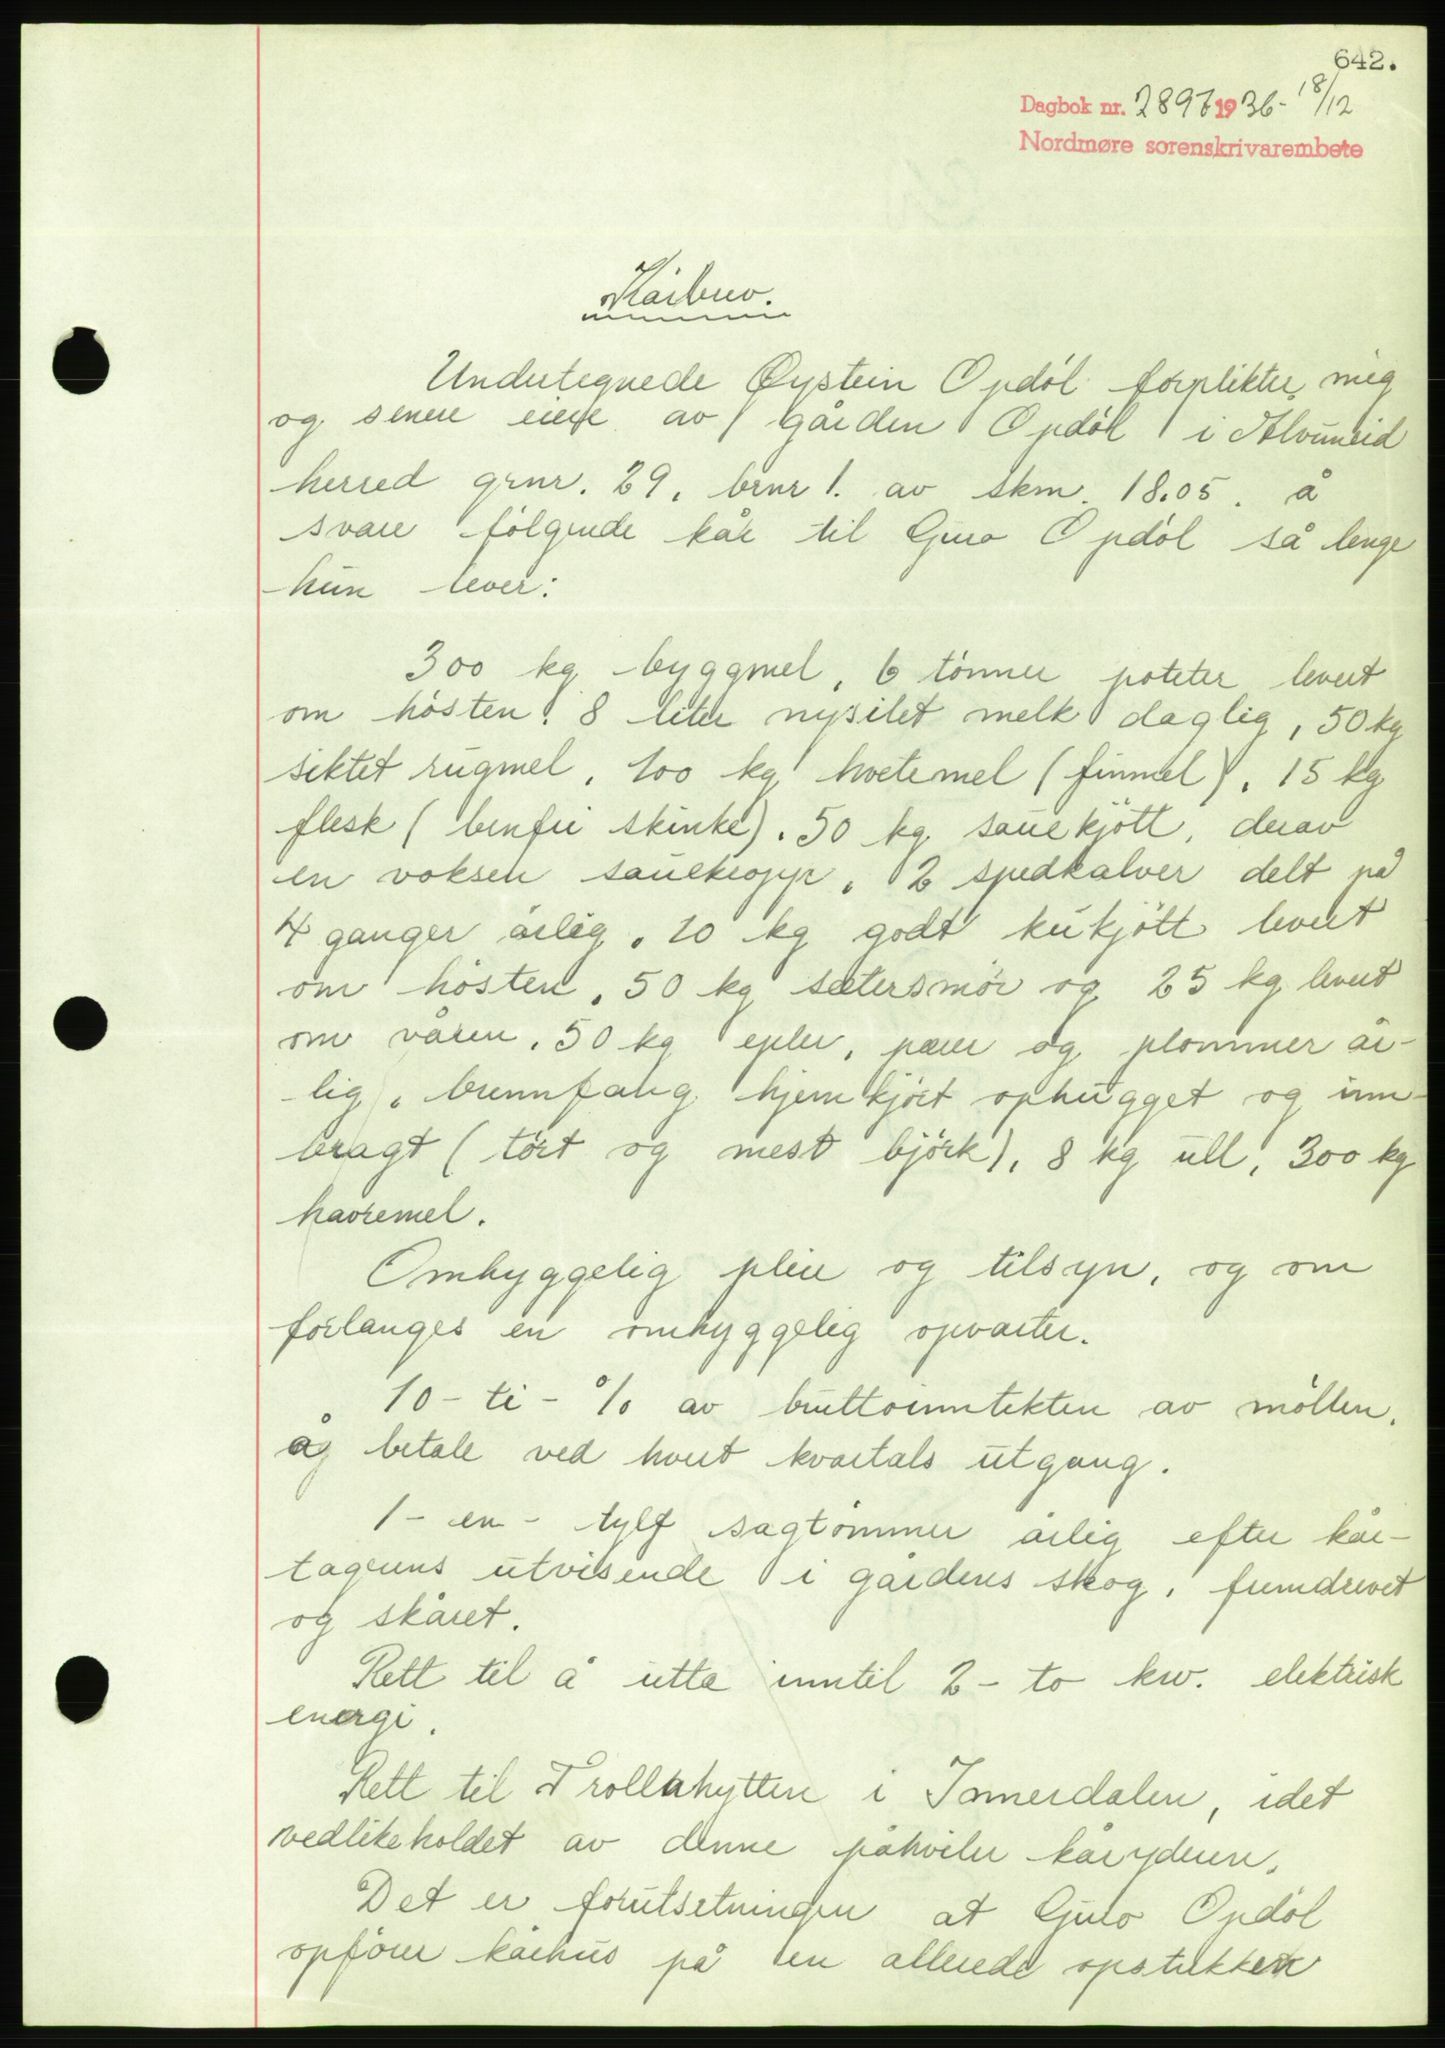 642.
Dagbok nr. 2897 1936 - 18/12
Nordmøre sorenskrivarembete
Kårbrev.
Undertegnede Øystein Opdøl forplikter mig
og senere eiere av gården Opdøl i Ålvundeid
herred grnr. 29, brnr 1. av skm. 18.05. å
svare følgende kår til Guro Opdøl så lenge
hun lever:
300 kg byggmel, 6 tönner poteter levert
om hösten. 8 liter nysilet melk daglig, 50 kg
siktet rugmel, 100 kg hvetemel (finmel), 15 kg
flesk (benfri skinke). 50 kg sauekjött, derav
en voksen sauekropp, 2 spedkalver delt på
4 ganger årlig. 20 kg godt kukjött levert
om hösten. 50 kg sætersmör og 25 kg levert
om våren. 50 kg epler, pærer og plommer år-
lig, brennfang hjemkjört ophugget og inn-
bragt (tört og mest björk), 8 kg ull, 300 kg
havremel.
Omhyggelig pleie og tilsyn, og om
forlanges en omhyggelig opvarter.
10 - ti - % av bruttoinntekten av möllen,
å betale ved hvert kvartals utgang.
1 - en - tylft sagtömmer årlig efter kår-
tagerens utvisende i gårdens skog, fremdrevet
og skåret.
Rett til å utta inntil 2 - to kw. elektrisk
energi.
Rett til Trollahytten i Innerdalen, idet
vedlikeholdet av denne påhviler kåryderen.
Det er forutsetningen at Guro Opdöl
opförer kårhus på en allerede opstukken